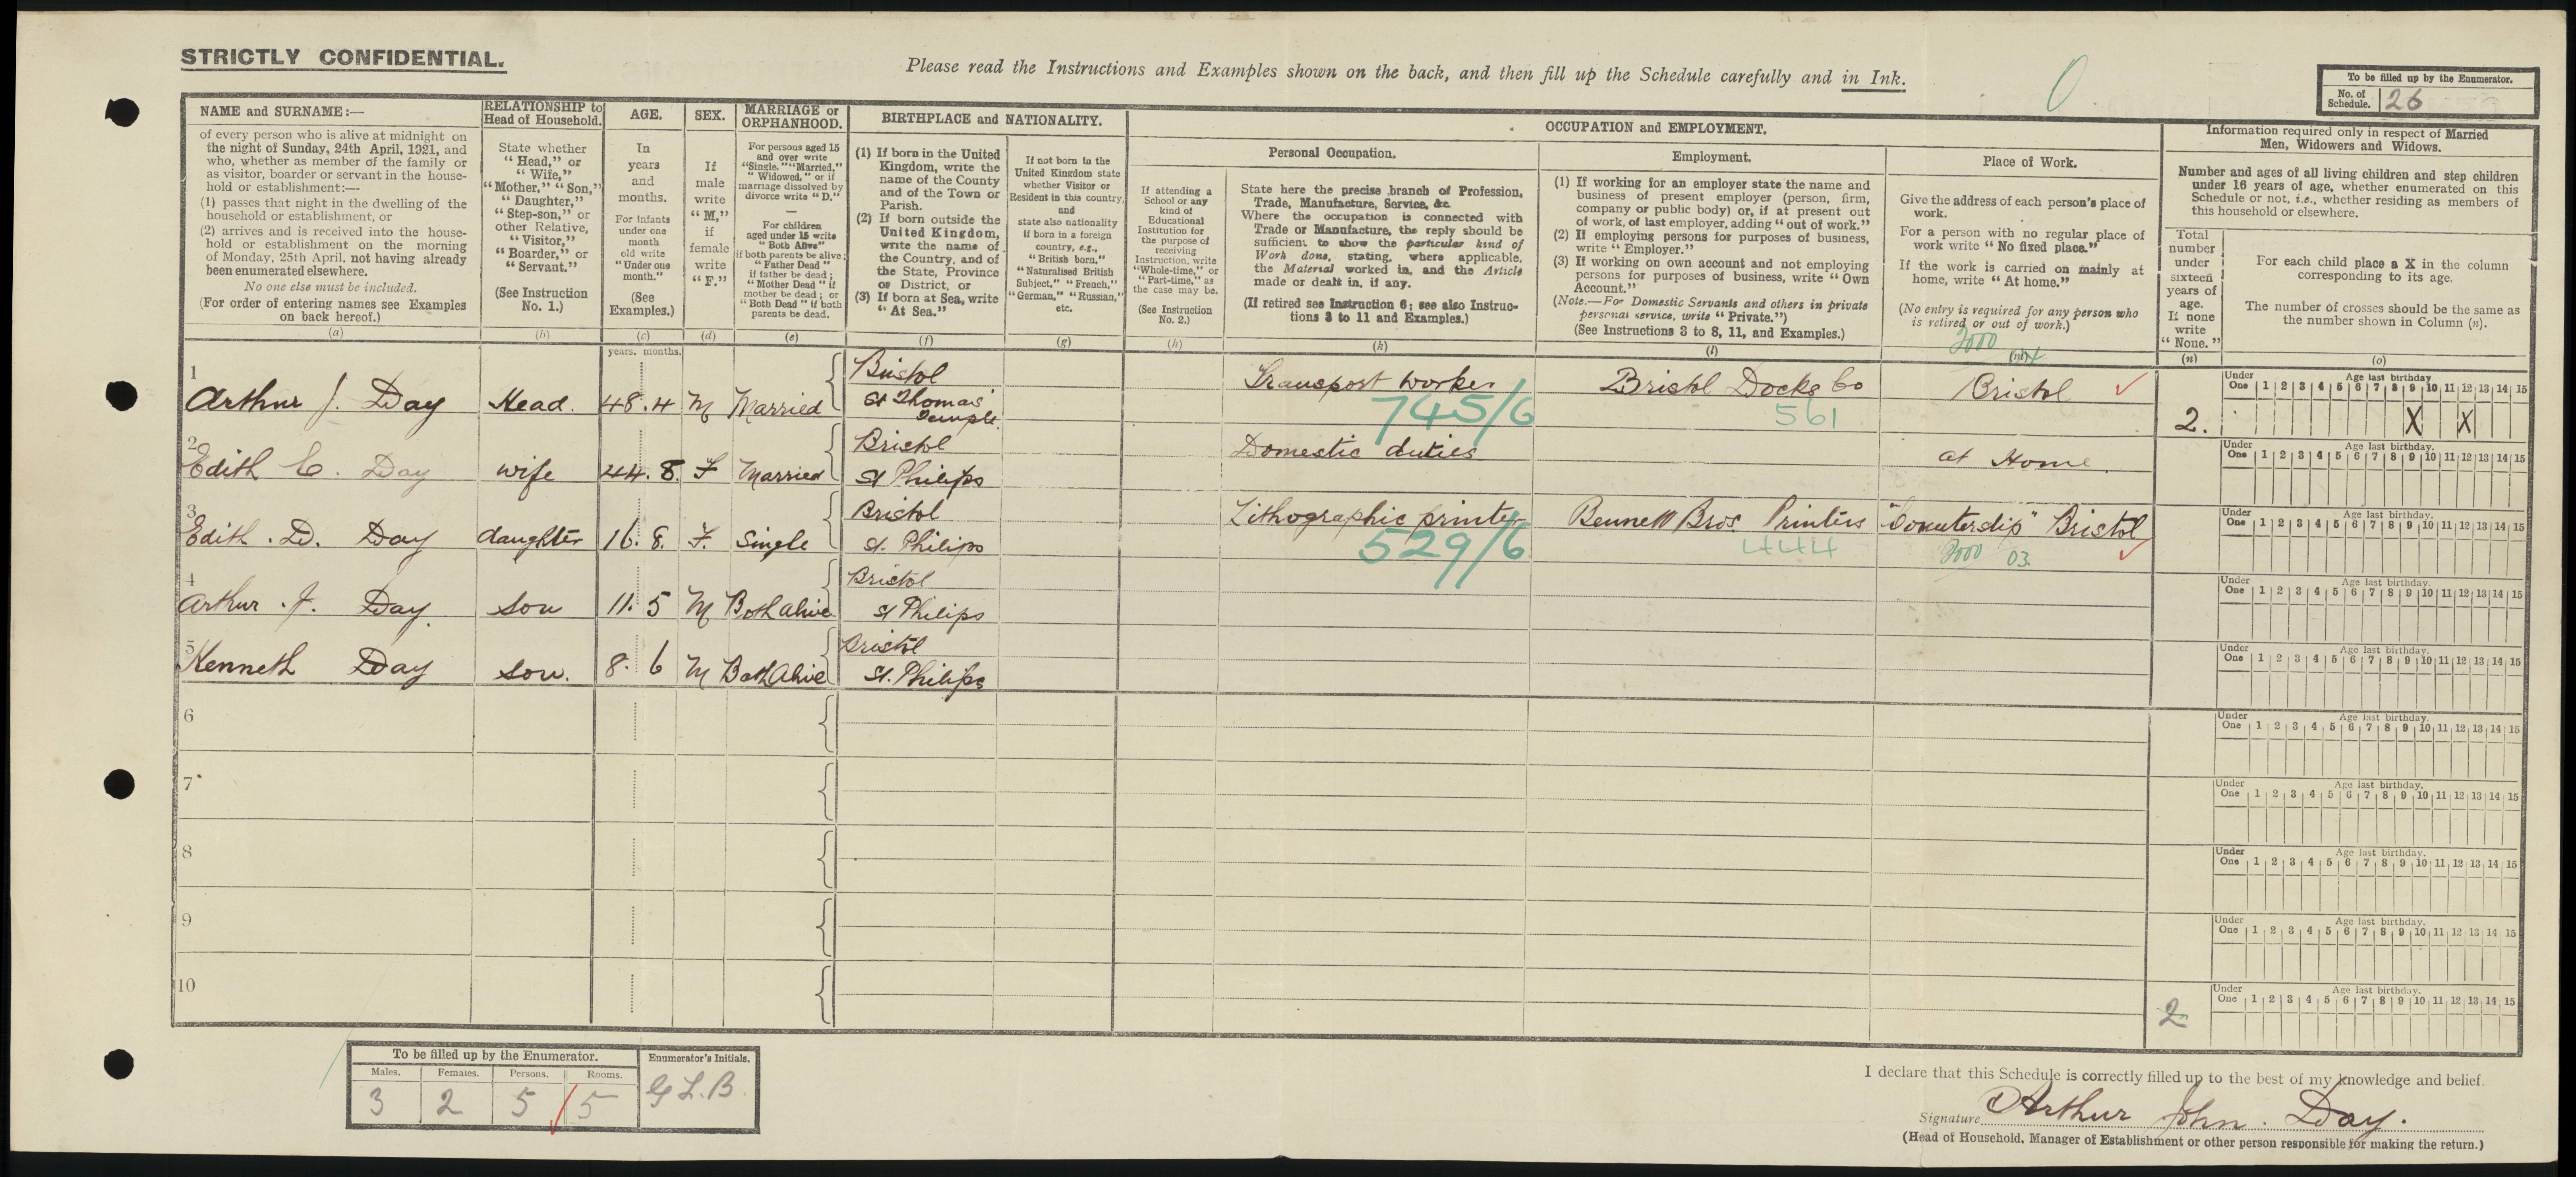 STRICTLY CONFIDENTIAL.
Please read the Instructions and Examples shown on the back, and then fill up the Schedule carefully and in Ink.
0
To be filled up by the Enumerator.
No. of Schedule. 26
NAME and SURNAME:—
of every person who is alive at midnight on
the night of Sunday, 24th April, 1921, and
who, whether as member of the family or
as visitor, boarder or servant in the house-
hold or establishment:—
(1) passes that night in the dwelling of the
household or establishment, or
(2) arrives and is received into the house-
hold or establishment on the morning
of Monday, 25th April, not having already
been enumerated elsewhere.
No one else must be included.
(For order of entering names see Examples
on back hereof.)
(a)
RELATIONSHIP to
Head of Household.
State whether
"Head," or
"Wife,"
"Mother," "Son,"
"Daughter,"
"Step-son," or
other Relative,
"Visitor,"
"Boarder," or
"Servant."
(See Instruction
No. 1.)
(b)
AGE.
In
years
and
months.
For infants
under one
month
old write
"Under one
month."
(See
Examples.)
(c)
SEX.
If
male
write
"M,"
if
female
write
"F."
(d)
MARRIAGE or
ORPHANHOOD.
For persons aged 15
and over write
"Single," "Married,"
"Widowed," or if
marriage dissolved by
divorce write "D."
—
For children
aged under 15 write
"Both Alive"
if both parents be alive;
"Father Dead"
if father be dead;
"Mother Dead" if
mother be dead; or
"Both Dead" if both
parents be dead.
(e)
BIRTHPLACE and NATIONALITY.
(1) If born in the United
Kingdom, write the
name of the County
and of the Town or
Parish.
(2) If born outside the
United Kingdom,
write the name of
the Country, and of
the State, Province
or District, or
(3) If born at Sea, write
"At Sea."
(f)
If not born in the
United Kingdom state
whether Visitor or
Resident in this country,
and
state also nationality
if born in a foreign
country, e.g.,
"British born,"
"Naturalised British
Subject," "French,"
"German," "Russian,"
etc.
(g)
OCCUPATION and EMPLOYMENT.
Personal Occupation.
If attending a
School or any
kind of
Educational
Institution for
the purpose of
receiving
Instruction, write
"Whole-time," or
"Part-time," as
the case may be.
(See Instruction
No. 2.)
(h)
State here the precise branch of Profession,
Trade, Manufacture, Service, &c.
Where the occupation is connected with
Trade or Manufacture, the reply should be
sufficient to show the particular kind of
Work done, stating, where applicable,
the Material worked in, and the Article
made or dealt in, if any.
(If retired see Instruction 6; see also Instruc-
tions 3 to 11 and Examples.)
(k)
Employment.
(1) If working for an employer state the name and
business of present employer (person, firm,
company or public body) or, if at present out
of work, of last employer, adding "out of work."
(2) If employing persons for purposes of business,
write "Employer."
(3) If working on own account and not employing
persons for purposes of business, write "Own
Account."
(Note.—For Domestic Servants and others in private
personal service, write "Private.")
(See Instructions 3 to 8, 11, and Examples.)
(l)
Place of Work.
Give the address of each person's place of
work.
For a person with no regular place of
work write "No fixed place."
If the work is carried on mainly at
home, write "At home."
(No entry is required for any person who
is retired or out of work.)
(m)
Information required only in respect of Married
Men, Widowers and Widows.
Number and ages of all living children and step children
under 16 years of age, whether enumerated on this
Schedule or not, i.e., whether residing as members of
this household or elsewhere.
Total
number
under
sixteen
years of
age.
If none
write
"None."
(n)
For each child place a X in the column
corresponding to its age.
The number of crosses should be the same as
the number shown in Column (n).
(o)
years. months.
1 Arthur J. Day Head. 48.4 M Married Bristol St Thomas Temple. Transport worker 745/6 Bristol Docks Co 561 Bristol 2.
Under One 1 2 3 4 5 6 7 8 9 10 11 12 13 14 15 Age last birthday. X X
2 Edith C. Day wife 44.8. F Married Bristol St Philips Domestic duties at Home.
Under One 1 2 3 4 5 6 7 8 9 10 11 12 13 14 15 Age last birthday.
3 Edith. D. Day daughter 16.8. F. Single Bristol St. Philips Lithographic printer 529/6 Bennett Bros. Printers 444 "Counterslip" Bristol 03.
Under One 1 2 3 4 5 6 7 8 9 10 11 12 13 14 15 Age last birthday.
4 Arthur. J. Day. son 11.5 M Both alive Bristol St Philips
Under One 1 2 3 4 5 6 7 8 9 10 11 12 13 14 15 Age last birthday.
5 Kenneth Day son. 8.6 M Both Alive Bristol St. Philips
Under One 1 2 3 4 5 6 7 8 9 10 11 12 13 14 15 Age last birthday.
6
Under One 1 2 3 4 5 6 7 8 9 10 11 12 13 14 15 Age last birthday.
7
Under One 1 2 3 4 5 6 7 8 9 10 11 12 13 14 15 Age last birthday.
8
Under One 1 2 3 4 5 6 7 8 9 10 11 12 13 14 15 Age last birthday.
9
Under One 1 2 3 4 5 6 7 8 9 10 11 12 13 14 15 Age last birthday.
10
Under One 1 2 3 4 5 6 7 8 9 10 11 12 13 14 15 Age last birthday.
2
To be filled up by the Enumerator.
Males. Females. Persons. Rooms.
3 2 5 5
Enumerator's Initials.
G L. B.
I declare that this Schedule is correctly filled up to the best of my knowledge and belief.
Signature Arthur John. Day.
(Head of Household, Manager of Establishment or other person responsible for making the return.)